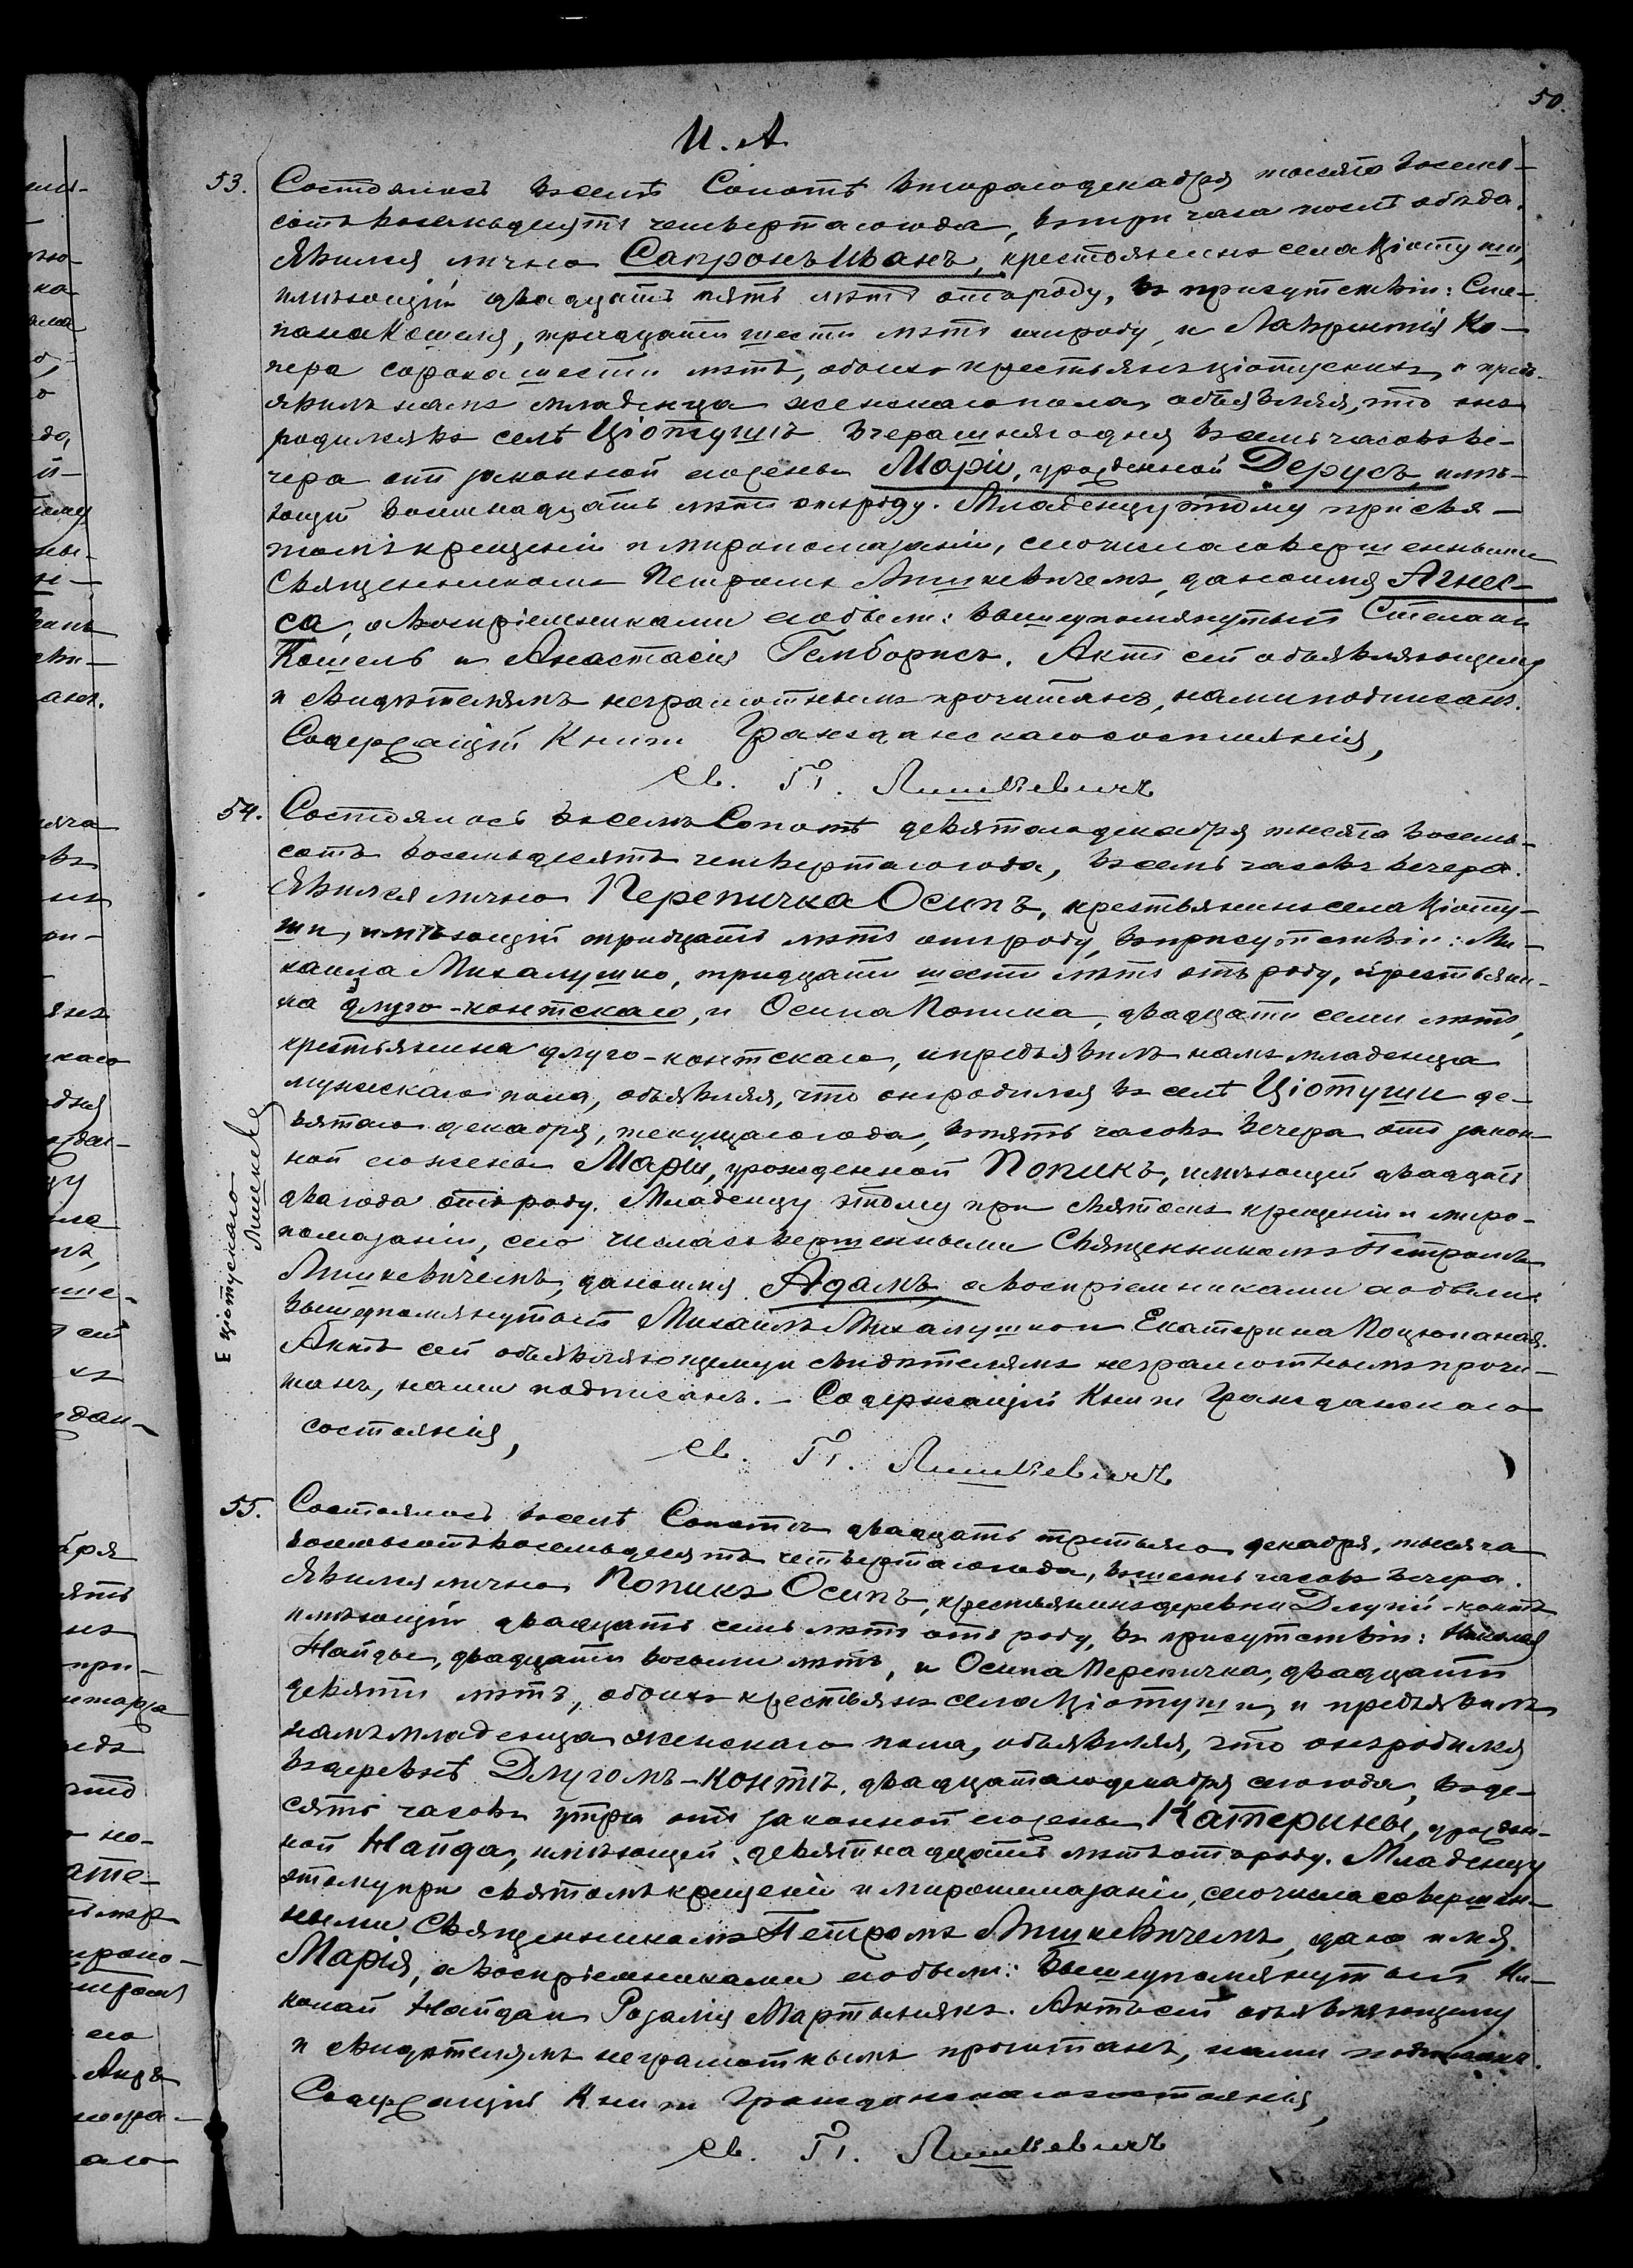 50.
И. А
53. Состоялось въ селѣ Сопотѣ втораго декабря тысяча восемь-
сотъ восемьдесятъ четвертаго года, въ три часа послѣ обѣда.
Явился лично Сапронъ Иванъ, крестьянинъ села Ціотуши,
имѣющій двадцать пять лѣтъ отъ роду, въ присутствіи: Сте-
пана Кошеля, тридцати шести лѣтъ отъ роду, и Лаврентія Ко-
пера сорока шести лѣтъ, обоихъ крестьянъ ціотускихъ, и предъ-
явилъ намъ младенца женскаго пола, объявляя, что онъ
родился въ селѣ Ціотушѣ вчерашняго дня въ семь часовъ ве-
чера отъ законной его жены Маріи, урожденной Дерусъ, имѣ-
ющей восемнадцать лѣтъ отъ роду. Младенцу этому при свя-
томъ крещеніи и миропомазаніи, сего числа совершенными
Священникомъ Петромъ Лишкевичемъ, дано имя Агнес-
са, а воспріемниками его были: вышеупомянутый Степанъ
Кошель и Анастасія Гемборисъ. Актъ сей объявляющему
и свидѣтелямъ неграмотнымъ прочитанъ, нами подписанъ.
Содержащій Книги Гражданскаго состоянія,
Св. П. Лишкевичъ
54. Состоялось въ селѣ Сопотѣ девятаго декабря тысяча восемь-
сотъ восемьдесятъ четвертаго года, въ семь часовъ вечера.
Явился лично Перепичка Осипъ, крестьянинъ села Ціоту-
ши, имѣющій тридцать лѣтъ отъ роду, въ присутствіи: Ми-
хаила Михалушко, тридцати шести лѣтъ отъ роду, крестьяни-
на длуго-контскаго, и Осипа Попика, двадцати семи лѣтъ,
крестьянина длуго-контскаго, и предъявилъ намъ младенца
мужескаго пола, объявляя, что онъ родился въ селѣ Ціотуши де-
вятаго декабря, текущаго года, въ пять часовъ вечера отъ закон-
ной его жены Маріи, урожденной Попикъ, имѣющей двадцать
два года отъ роду. Младенцу этому при святомъ крещеніи и миро-
помазаніи, сего числа совершенными Священникомъ Петромъ
Лишкевичемъ, дано имя Адамъ, а воспріемниками его были:
вышеупомянутый Михаилъ Михалушко и Екатерина Поцюпаная.
Актъ сей объявляющему и свидѣтелямъ неграмотнымъ прочи-
танъ, нами подписанъ. – Содержащій Книги Гражданскаго
состоянія,
Св. П. Лишкевичъ
ціотускаго
Лишкев
55. Состоялось въ селѣ Сопотѣ двадцать третьяго декабря, тысяча
восемьсотъ восемьдесятъ четвертаго года, въ шесть часовъ вечера.
Явился лично Попикъ Осипъ, крестьянинъ деревни Длугій-контъ
имѣющій двадцать семь лѣтъ отъ роду, въ присутствіи: Николая
Найды, двадцати восьми лѣтъ, и Осипа Перепичка, двадцати
девяти лѣтъ, обоихъ крестьянъ села Ціотуши, и предъявилъ
намъ младенца женскаго пола, объявляя, что онъ родился
въ деревнѣ Длугомъ-контѣ, двадцатаго декабря сего года, въ де-
сять часовъ утра отъ законной его жены Катерины, урожден-
ной Найда, имѣющей девятнадцать лѣтъ отъ роду. Младенцу
этому при святомъ крещеніи и миропомазаніи, сего числа совершен-
ными Священникомъ Петромъ Лишкевичемъ, дано имя
Марія, а воспріемниками его были: вышеупомянутый Ни-
колай Найда и Розалія Мартынякъ. Актъ сей объявляющему
и свидѣтелямъ неграмотнымъ прочитанъ, нами подписанъ.
Содержащій Книги Гражданскаго состоянія,
Св. П. Лишкевичъ